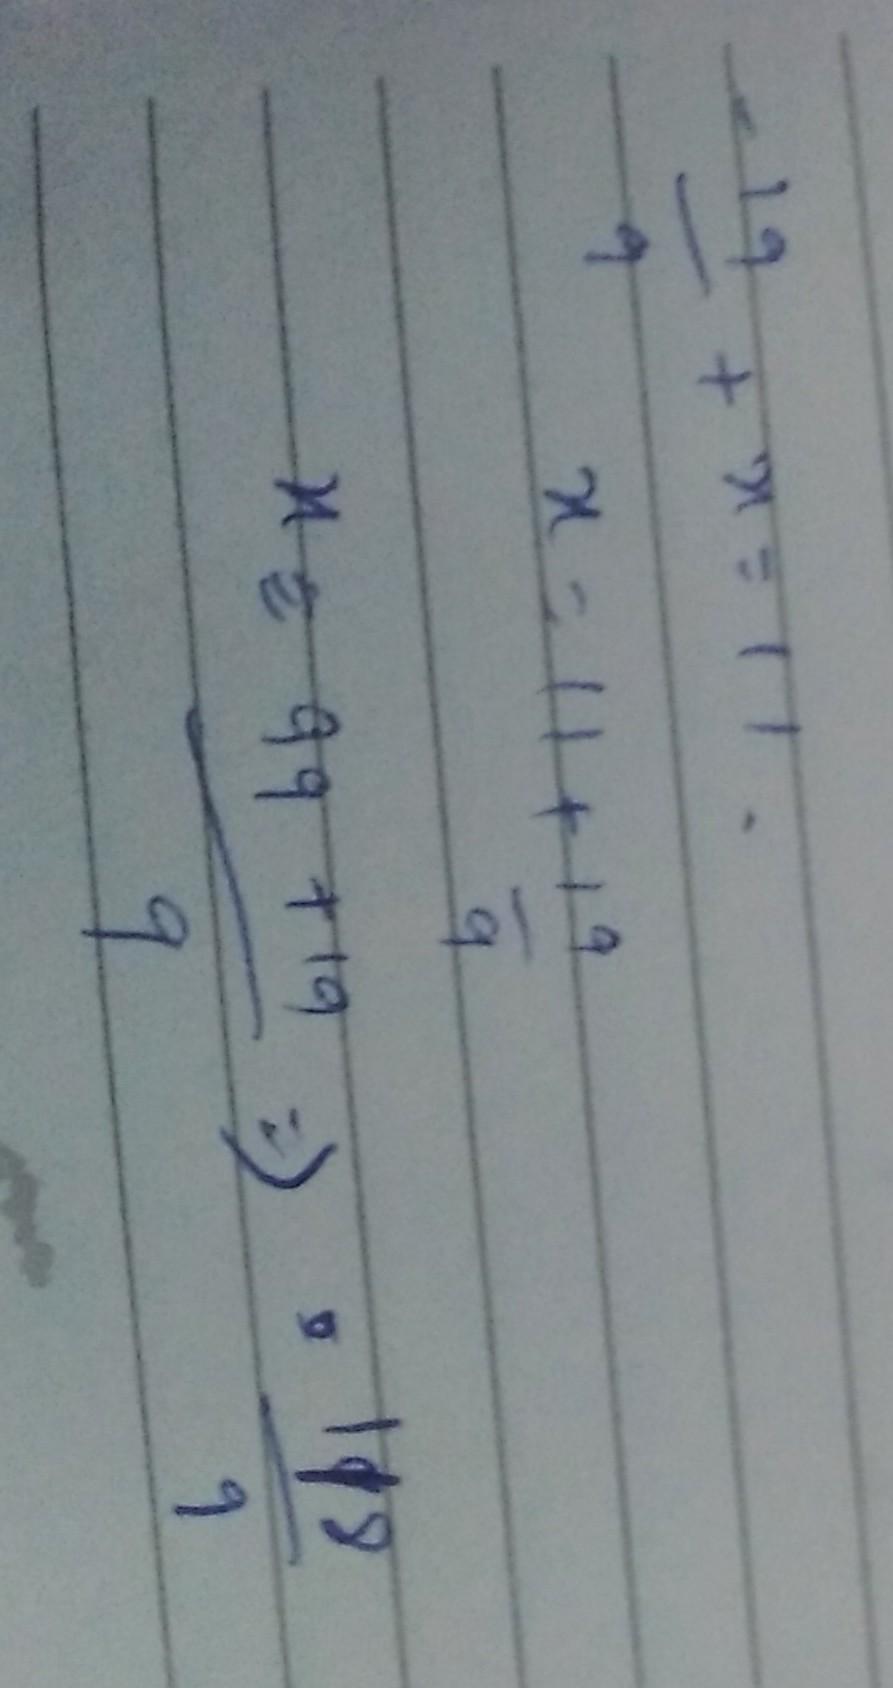 - 19/9 + x = 11.
x = 11 + 19/9
x = 99 + 19/9 => 118/9